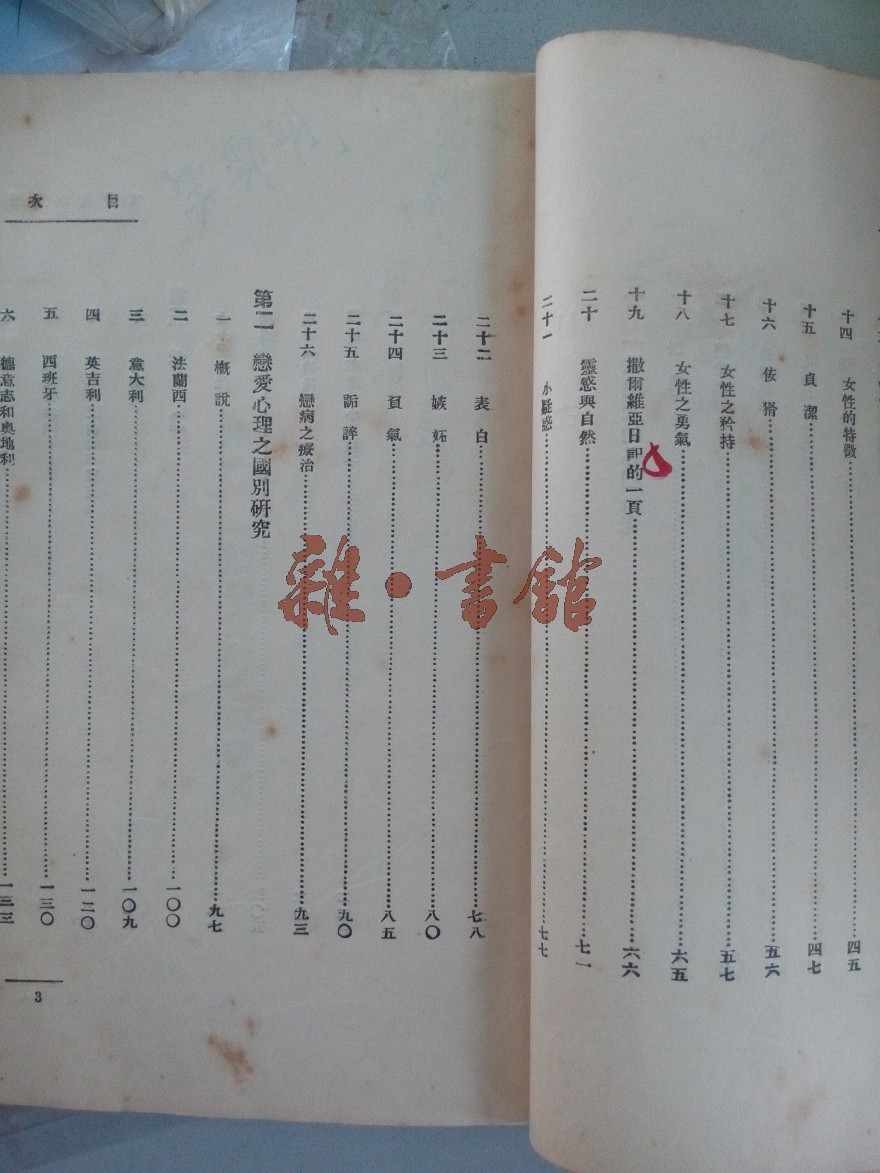 十四 女性的特徵 四五
十五 貞潔 四七
十六 依 五六
十七 女性之矜持 五七
十八 女性之勇氣 六五
十九 撒爾維亞日記的一頁 六六
二十 靈感與自然 七一
二十一 小疑惑 七七
目次
二十二 表白 七八
二十三 嫉妬 八〇
二十四 負氣 八五
二十五 詬誶 九〇
二十六 戀病之療治 九三
第二 戀愛心理之國別研究
一 概說 九七
二 法蘭西 一〇〇
三 意大利 一〇九
四 英吉利 一二〇
五 西班牙 一三〇
六 德意志和奧地利 一三三
3
雜·書館